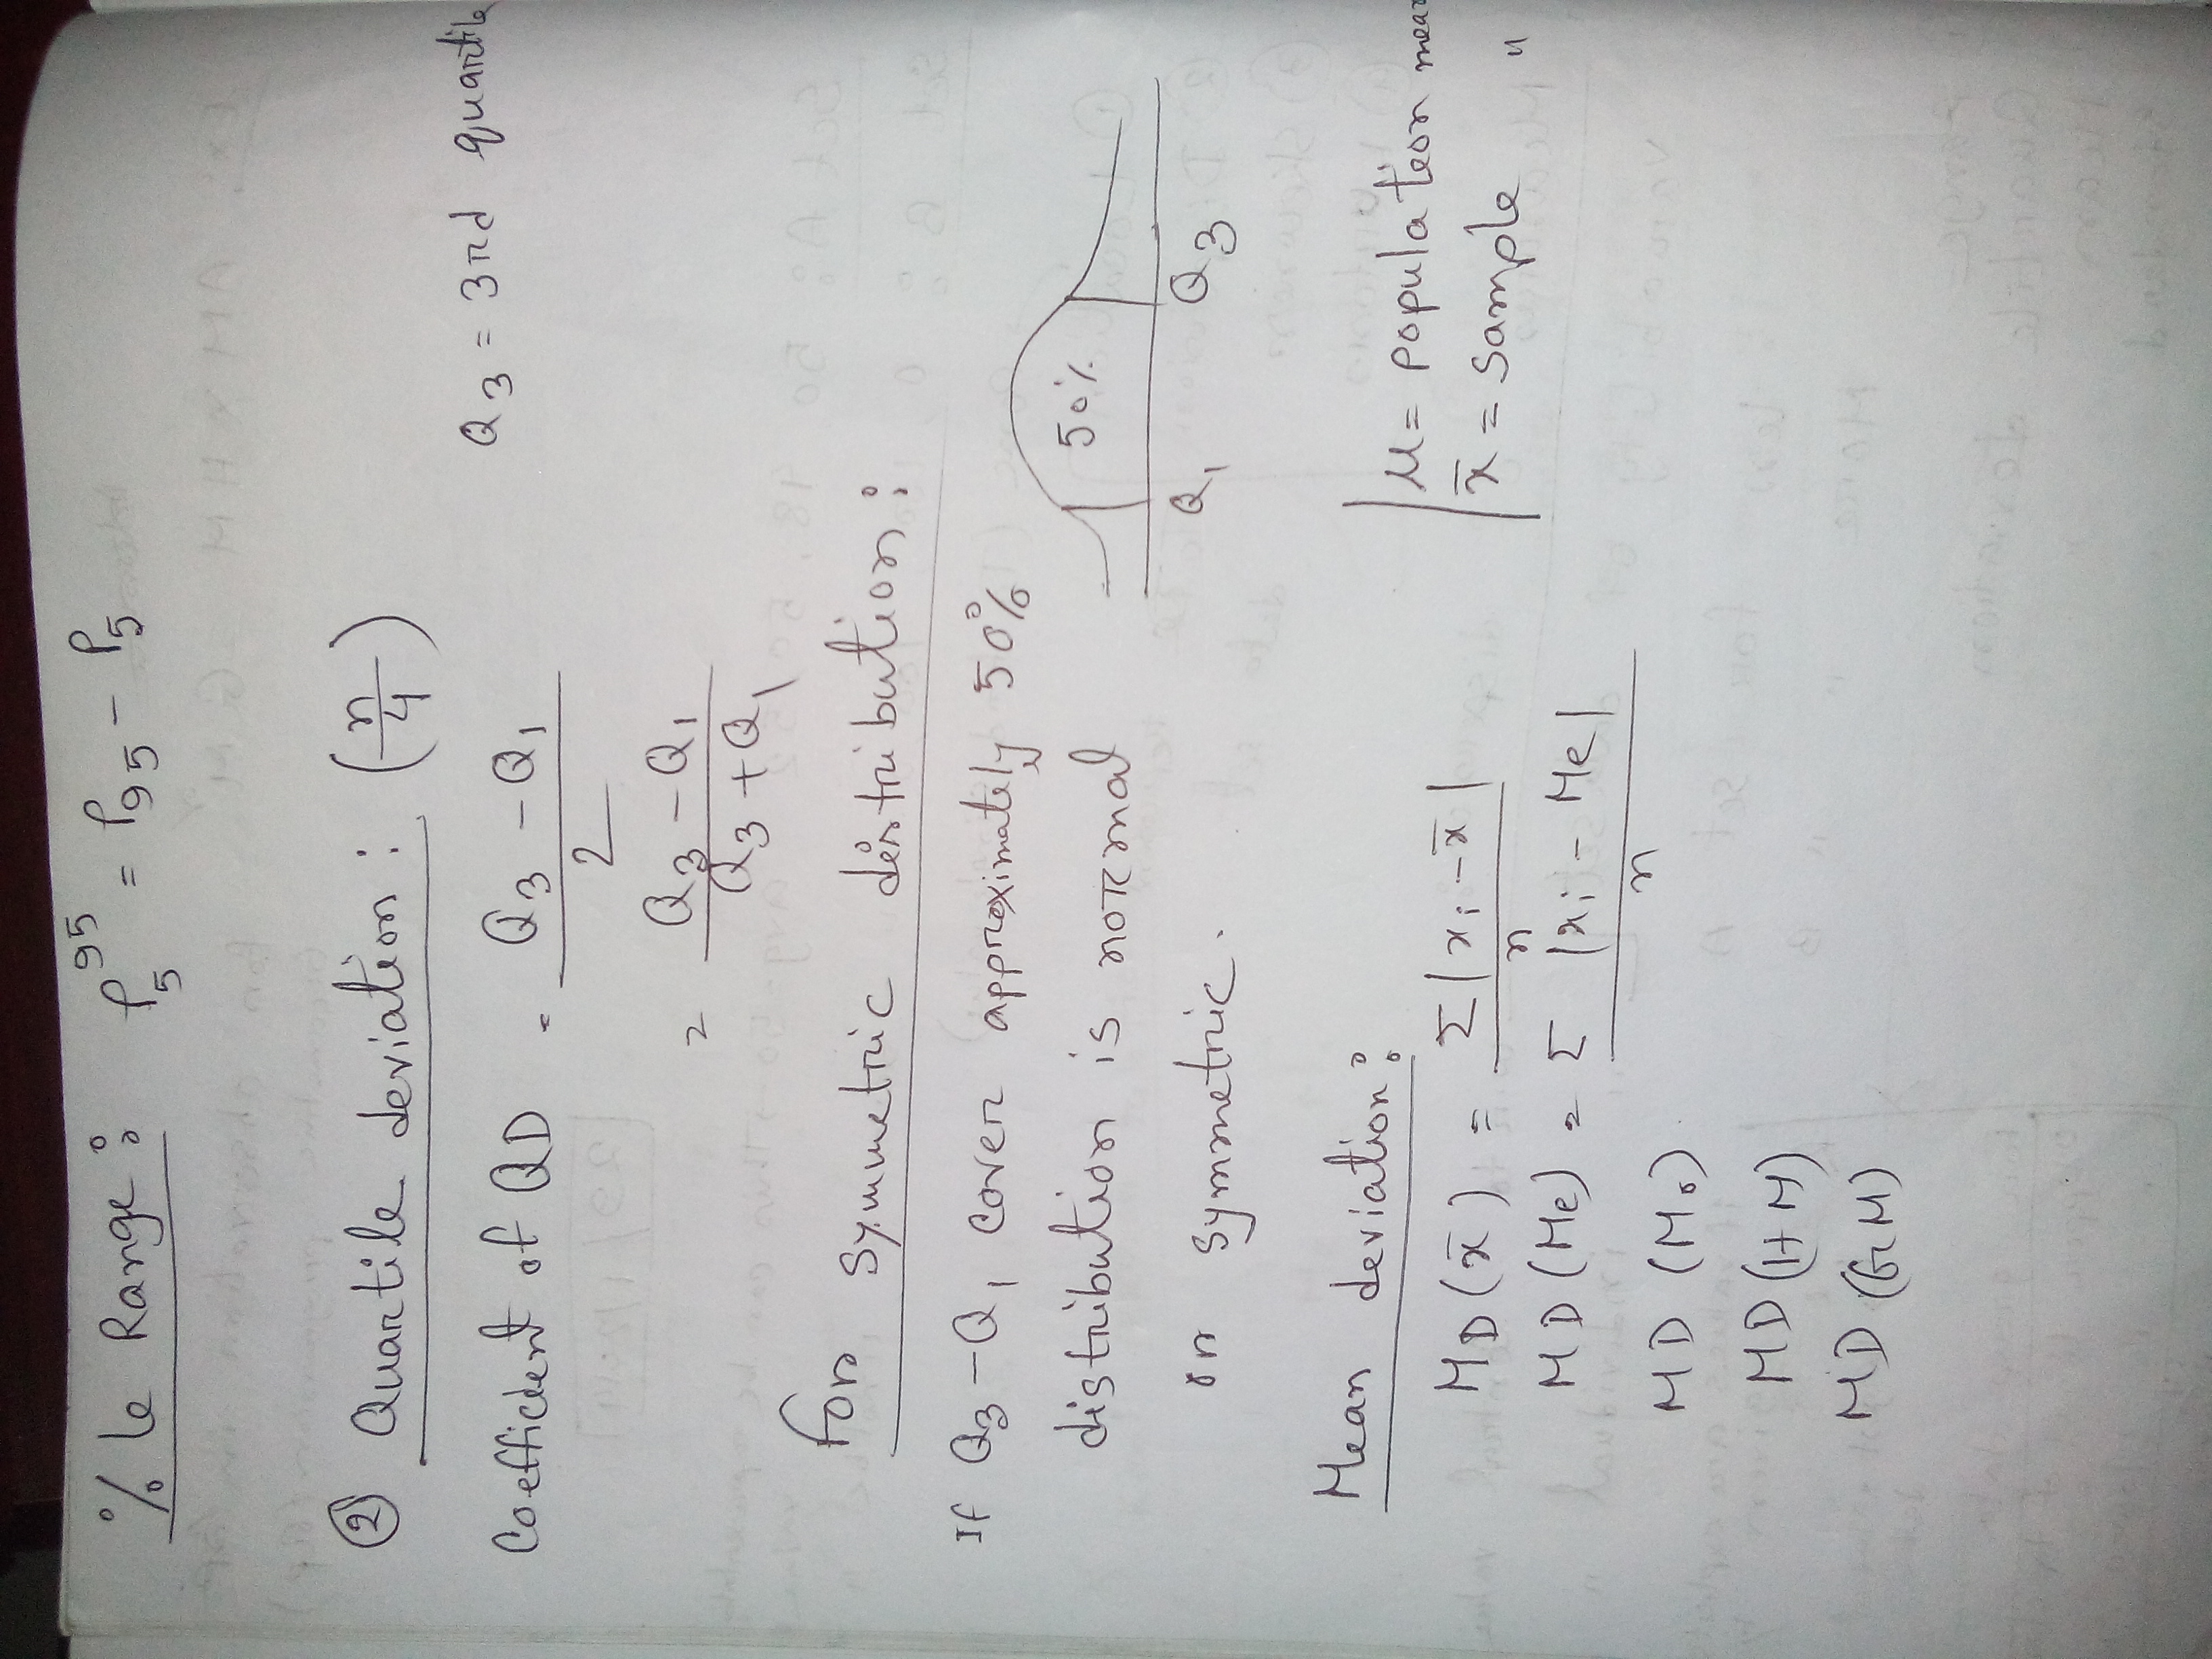 %le Range: P₅⁹⁵ = P₉₅ - P₅
② Quartile deviation: (n/4)
Q₃ = 3rd quartile
Coefficient of QD = (Q₃ - Q₁)/2
= (Q₃ - Q₁)/(Q₃ + Q₁)
For symmetric distribution:
If Q₃ - Q₁ cover approximately 50%
distribution is normal
or symmetric.
50%
Q₁ Q₃
Mean deviation:
μ = population mean
x̄ = sample "
MD (x̄) = Σ|xᵢ - x̄|/n
MD (Me) = Σ |xᵢ - Me|/n
MD (Mo)
MD (HM)
MD (GM)